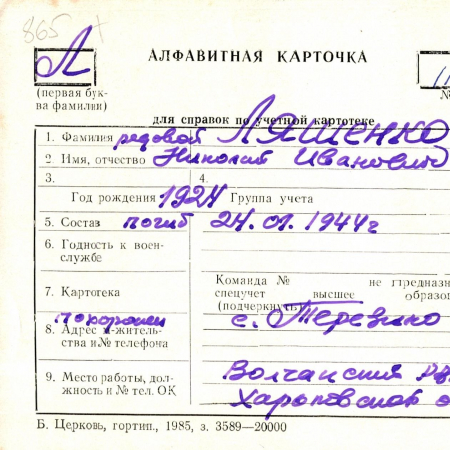 865 +
Л
АЛФАВИТНАЯ КАРТОЧКА
(первая бук-
ва фамилии)
№
для справок по учетной картотеке
1. Фамилия редовой ЛЯШЕНКО
2. Имя, отчество Николай Иванович
3. 4.
Год рождения 1924 Группа учета
5. Состав погиб 24.01.1944г
6. Годность к воен-
службе
Команда № не предназн
7. Картотека спецучет высшее образо
(подчеркнуть)
похоронен с.
8. Адрес и-житель-
ства и № телефона
9. Место работы, дол-
жность и № тел. ОК
Волчанский
Харьковской о
Б. Церковь, гортип., 1985, з. 3589—20000